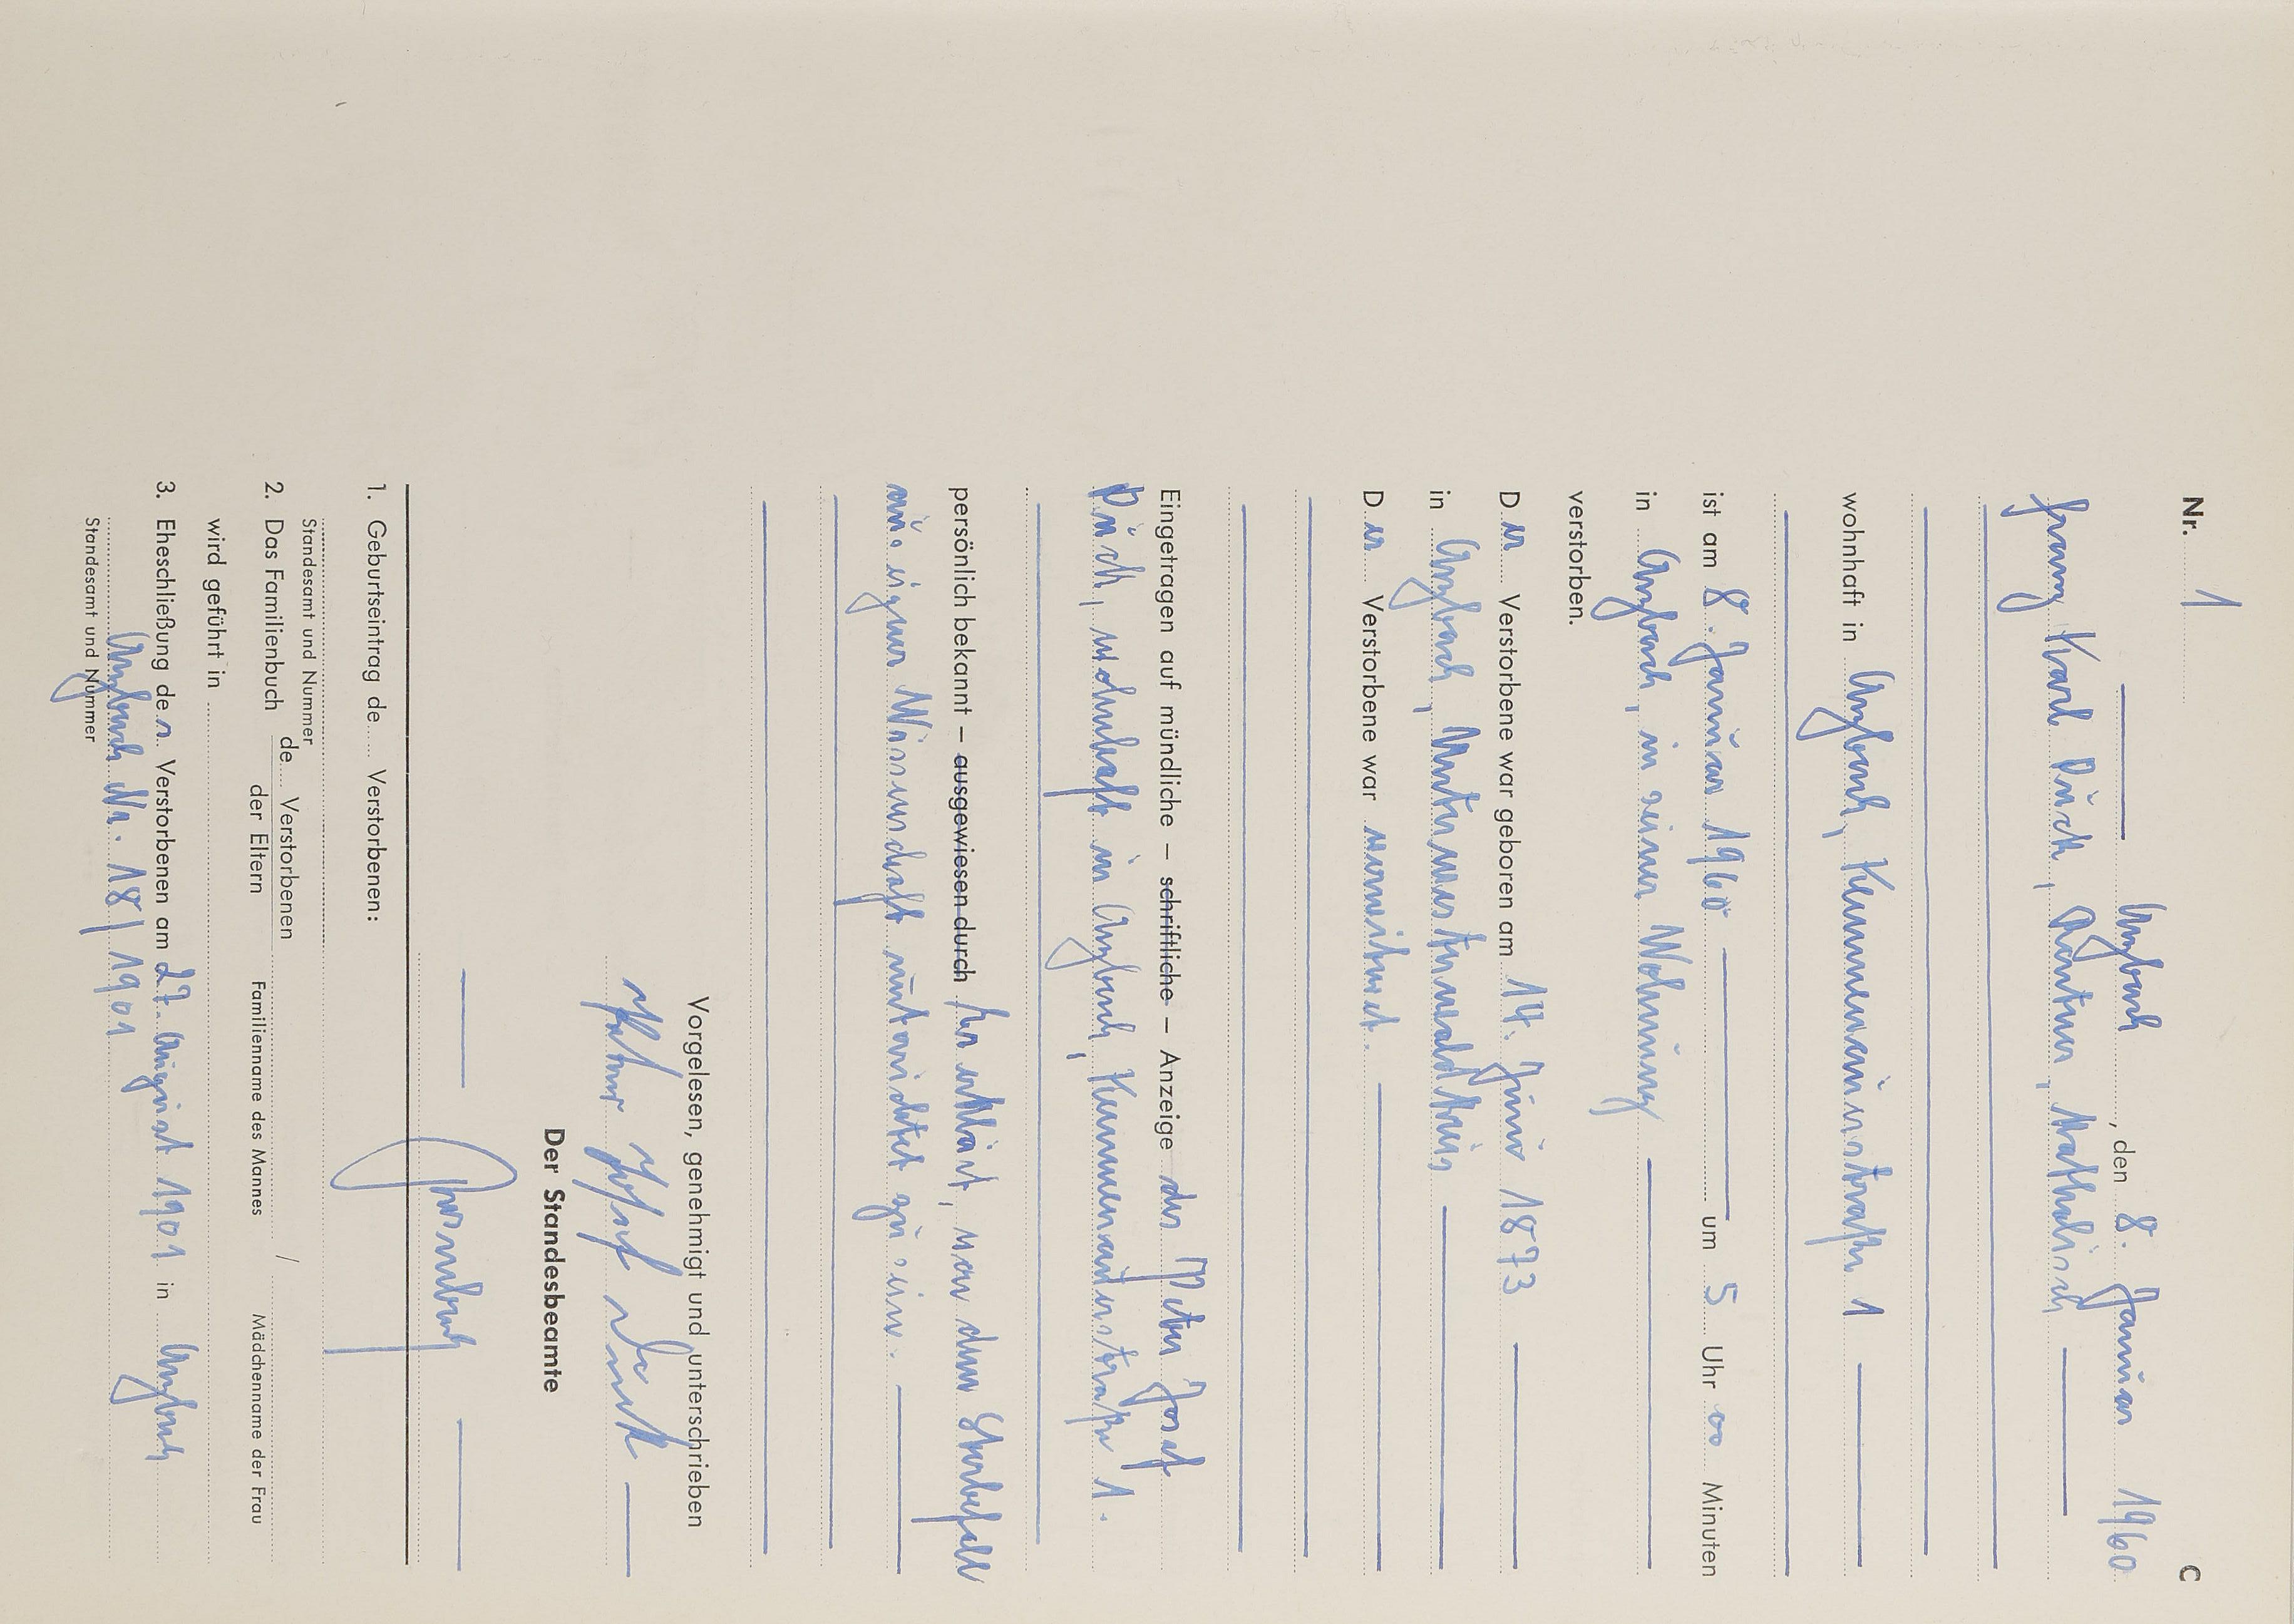 Nr. 1 C
Arzbach, den 8. Januar 1960
Franz Karl Duck, Rentner, katholisch
wohnhaft in Arzbach, Kemmenauerstraße 1
ist am 8. Januar 1960 um 5 Uhr 00 Minuten
in Arzbach, in seiner Wohnung
verstorben.
Der Verstorbene war geboren am 14. Juni 1873
in Arzbach, Unterwesterwaldkreis
Der Verstorbene war verwitwet.
Eingetragen auf mündliche – schriftliche – Anzeige des Peter Josef
Duck, wohnhaft in Arzbach, Kemmenauerstraße 1.
persönlich bekannt – ausgewiesen durch Er erklärt, von dem Sterbefall
aus eigener Wissenschaft unterrichtet zu sein.
Vorgelesen, genehmigt und unterschrieben
Peter Josef Duck
Der Standesbeamte
1. Geburtseintrag de Verstorbenen:
Standesamt und Nummer
2. Das Familienbuch de Verstorbenen /
der Eltern Familienname des Mannes Mädchenname der Frau
wird geführt in
3. Eheschließung des Verstorbenen am 27. August 1901 in Arzbach
Arzbach Nr. 18/1901
Standesamt und Nummer